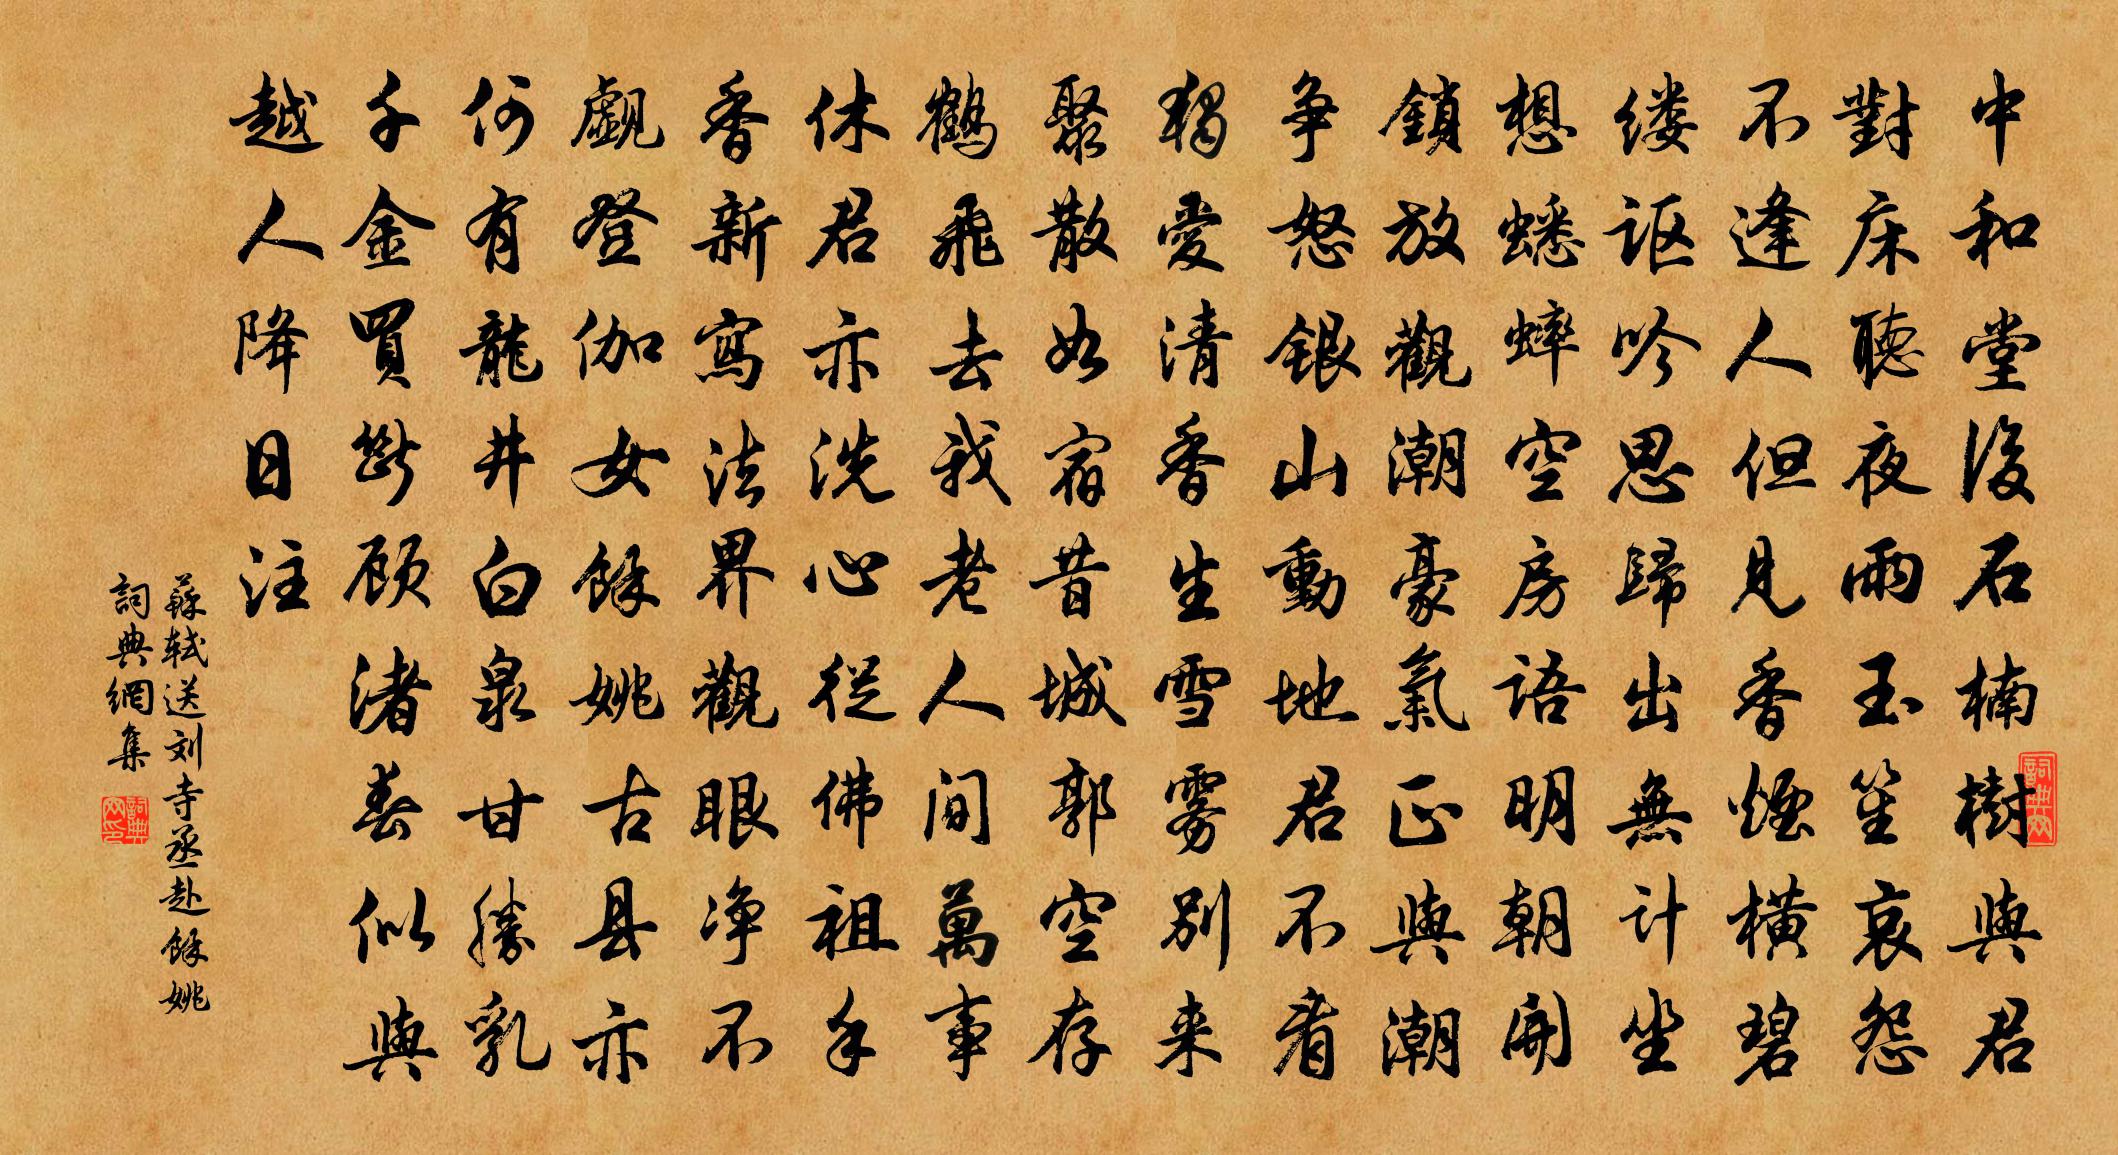 中和堂後石楠樹與君
對床聽夜雨玉笙哀怨
不逢人但見香煙橫碧
缕讴吟思歸出無計坐
想蟋蟀空房語明朝開
鎖放觀潮豪氣正與潮
争怒銀山動地君不看
獨愛清香生雪雾別来
聚散如宿昔城郭空存
鶴飛去我老人间萬事
休君亦洗心從佛祖手
香新寫法界觀眼净不
覷登伽女餘姚古县亦
何有龍井白泉甘勝乳
千金買斷顾渚春似與
越人降日注
蘇轼送刘寺丞赴餘姚
詞典網集